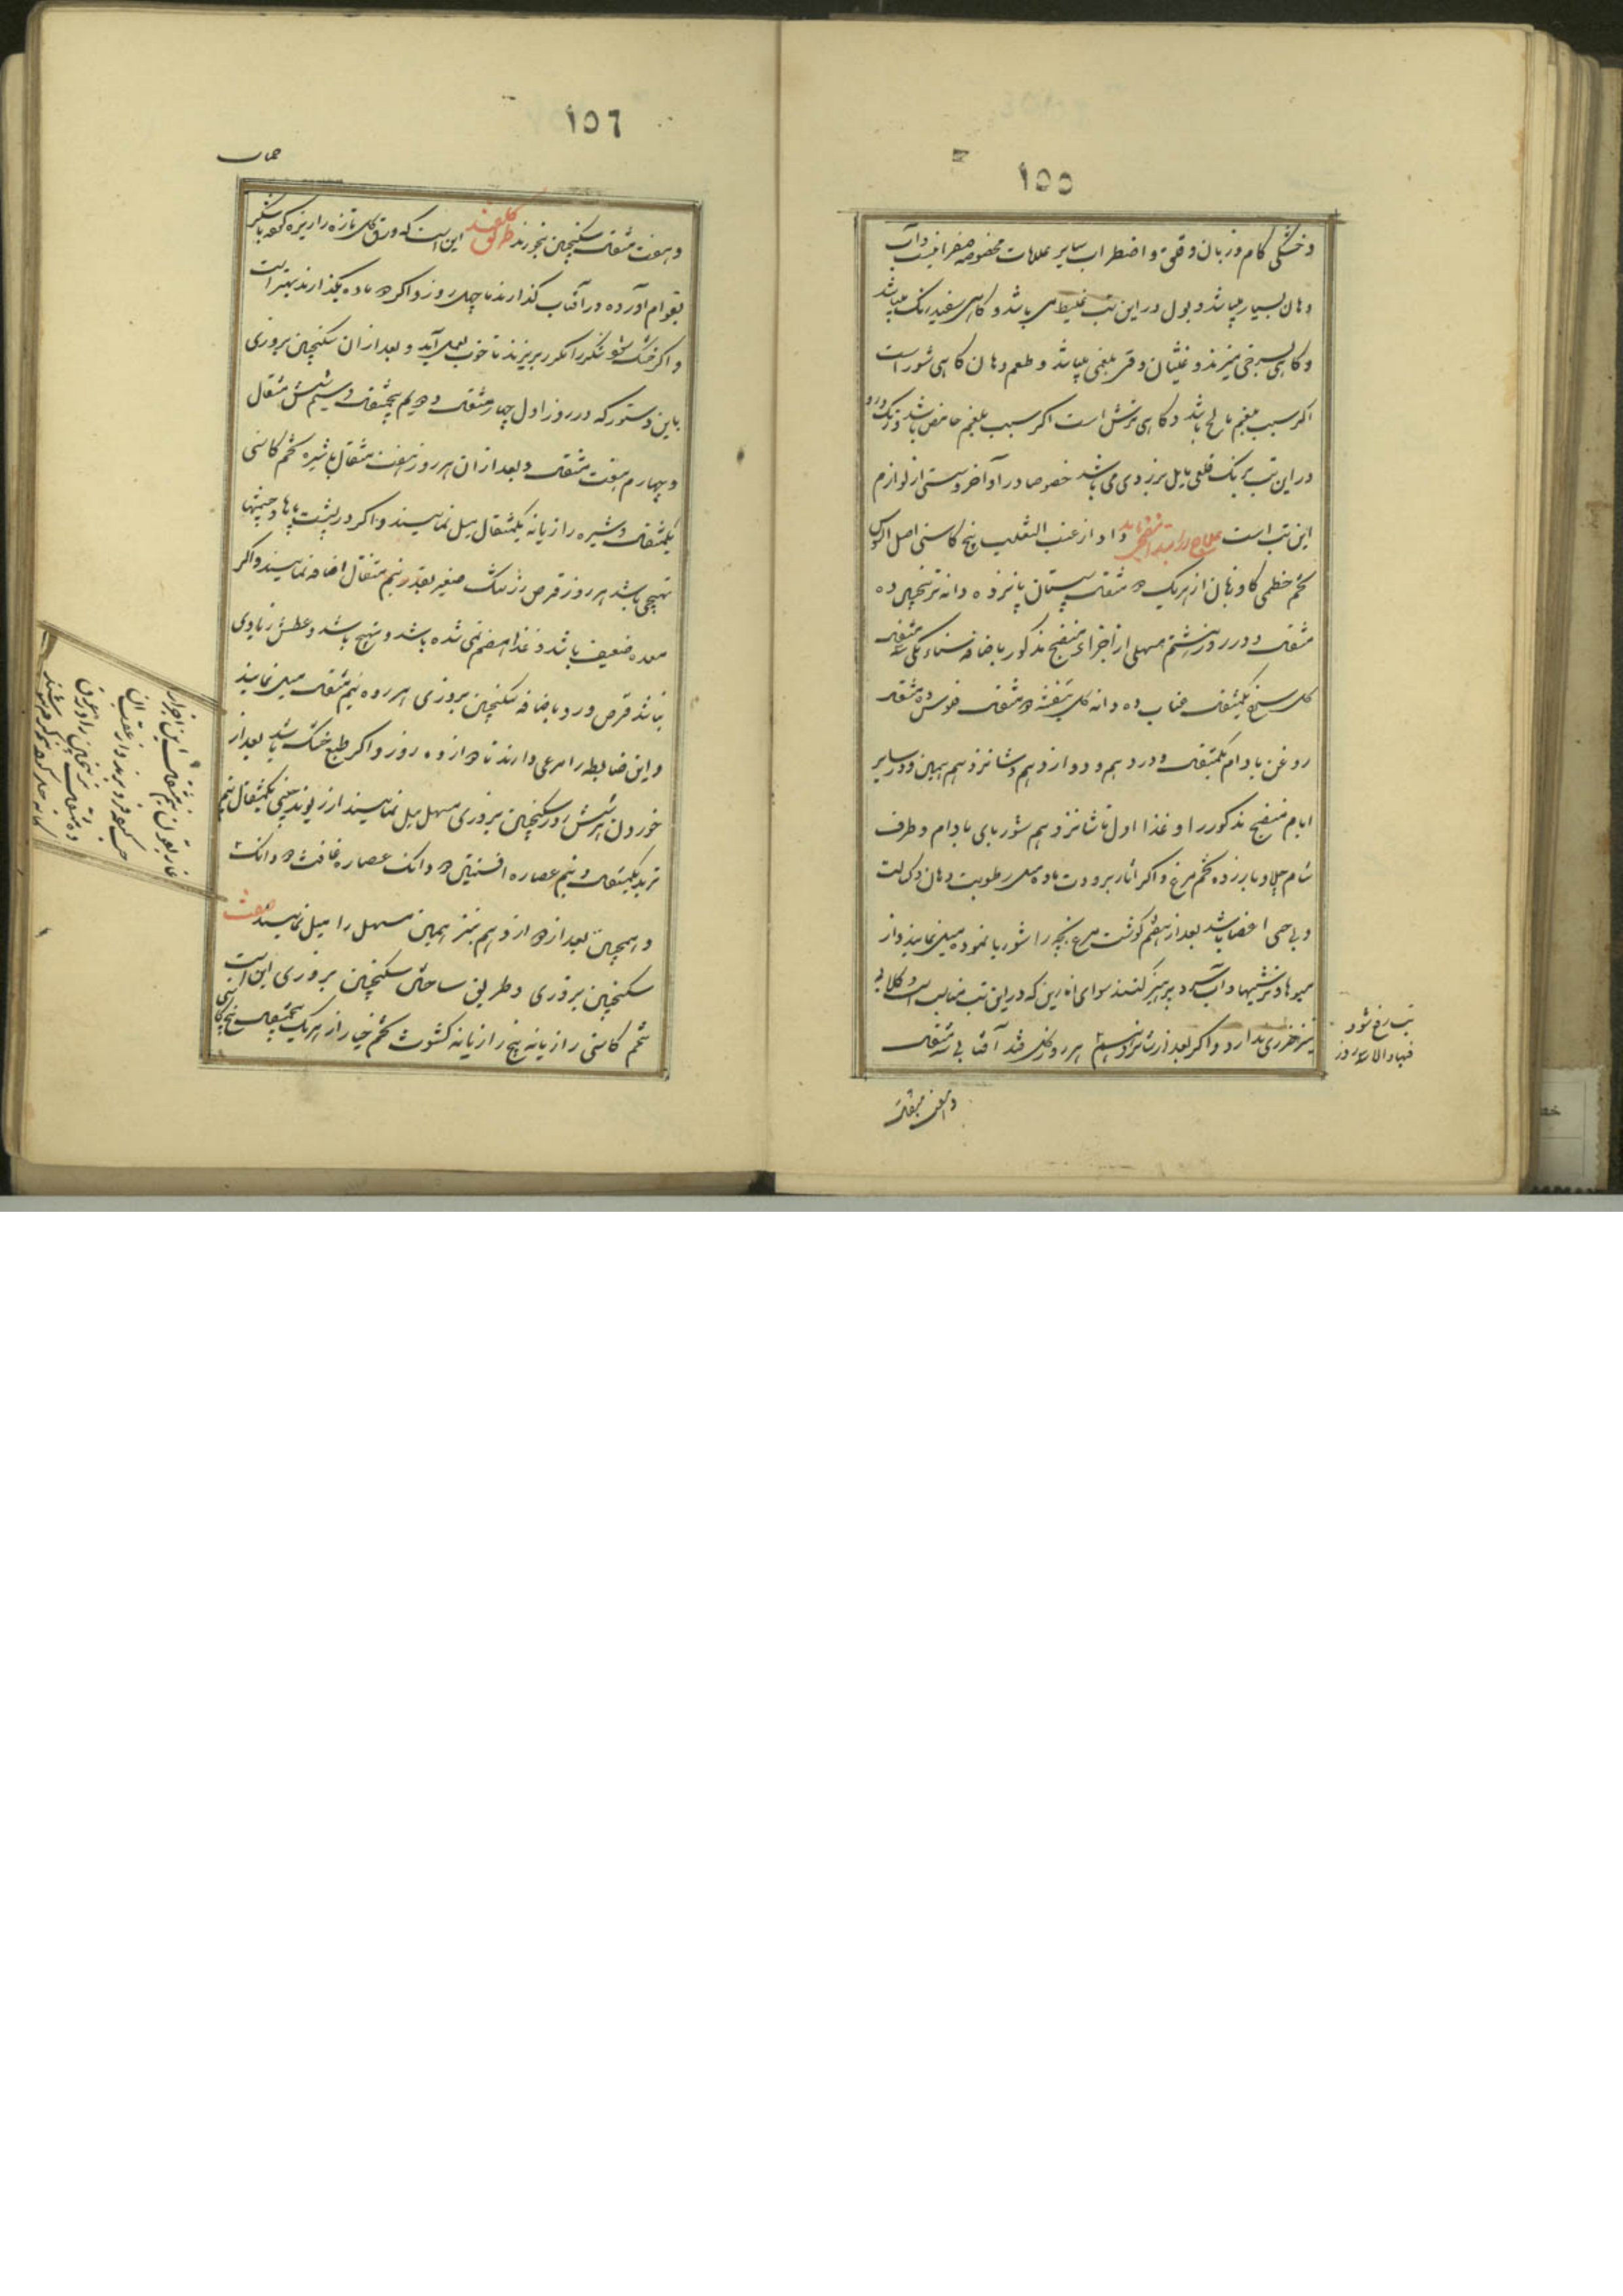 ١٥٥
وخشکی کام و زبان و قلق و اضطراب سایر علامات مخصوصه صفرا نیست و آب
دهان بسیار میباشد و بول در این تب غلیظ می باشد و کاهی سفید رنک میباشد
و کاهی بسرخی میزند و غثیان و قی بلغمی میباشد و طعم دهان کاهی شور است
اکر سبب بلغم مالح باشد و کاهی ترش است اکر سبب بلغم حامض باشد و رنک و رو
در این تب برنک قلعی مایل بزردی می باشد خصوصا در اواخر و سستی از لوازم
این تب است علاج در ابتدا منضجی باید داد از عنب الثعلب بیخ کاسنی اصل السوس
تخم خطمی کاو زبان از هریک دو مثقال سپستان پانزده دانه ترنجبین ده
مثقال و در روز هشتم مسهلی از اجزای منضج مذکور باضافه سناء مکی سه مثقال
کل سرخ یکمثقال عناب ده دانه کل بنفشه دو مثقال فلوس ده مثقال
روغن بادام یکمثقال و در دهم و دوازدهم و شانزدهم همین و در سایر
ایام منضج مذکور را و غذا اول تا شانزدهم شوربای بادام و طرف
شام چلاو با زرده تخم مرغ و اکر اثار برودت ماده مثل رطوبت دهان و کسالت
و بی حسی اعضا باشد بعد از هفتم کوشت مرغ بچه را شوربا نموده میل نمایند و از
میوها و ترشیها و آب سرد پرهیز کنند سوای انارین که در این تب مناسب است و کلابی
نیز ضرری ندارد و اکر بعد از شانزدهم هر روز کل قند آفتابی سه مثقال
تب رفع شود
فبها و الا سه روز
و هفت مثقال
١٥٦
حمیات
و هفت مثقال سکنجبین بخورند طریق کلقند این است که ورق کل تازه را ریزه کرده با شکر
بقوام آورده در آفتاب کذارند تا چهل روز و اکر دو ماده بکذارند بهتر است
و اکر خشک شود شکر را مکرر بریزند تا خوب بعمل آید و بعد از ان سکنجبین بزوری
باین دستور که در روز اول چهار مثقال و دویم پنجمثقال و سیم شش مثقال
و چهارم هفت مثقال و بعد از ان هر روز هفت مثقال با شیره تخم کاسنی
یکمثقال و شیره رازیانه یکمثقال میل نمایند و اکر در پشت پاها و چشمها
تهیجی باشد هر روز قرص زرشک صغیر بقدر نیم مثقال اضافه نمایند و اکر
معده ضعیف باشد و غذا هضم نمی شده باشد و تهیج باشد و عطش زیادی
نباشد قرص ورد باضافه سکنجبین بزوری هر روزه نیم مثقال میل نمایند
و این ضابطه را مرعی دارند تا دوازده روز و اکر طبع خشک باشد بعد از
خوردن هر شش روز سکنجبین بزوری مسهل میل نمایند از ریوند چینی یکمثقال نیم
تربد یکمثقال و نیم عصاره افسنتین دو دانک عصاره غافث دو دانک
و همچنین بعد از دوازدهم نیز همین مسهل را میل نمایند صفت
سکنجبین بزوری و طریق ساختن سکنجبین بزوری این است
تخم کاسنی رازیانه بیخ رازیانه کشوث تخم خیار از هریک پنجمثقال بیخ کاسنی
غاریقون نیم مثقال این اجزا را
حب کرده فرو برند و از عقب ان
ده مثقال ترنجبین را در عرق